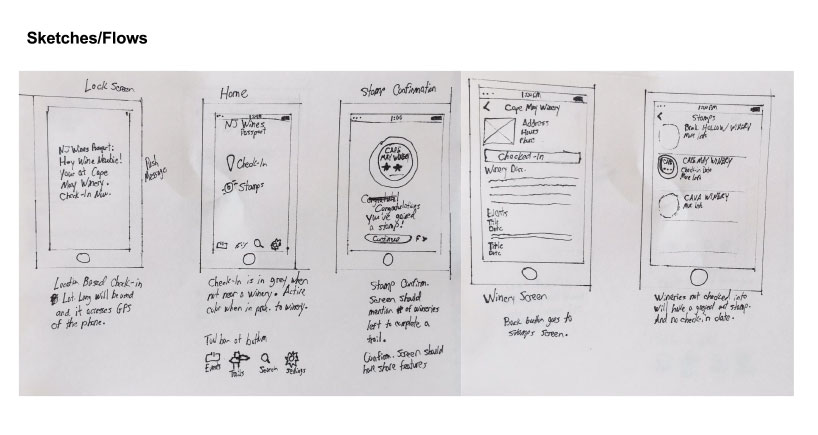 Sketches/Flows
Lock Screen
NJ Wines Passport:
Hey Wine Newbie!
Your at Cape
May Winery.
Check-In Now.
Push
Message
Location Based Check-in
Lat Long will be used
and it accesses GPS
of the phone.
Home
NJ Wines
Passport
Check-In
Stamps
Check-In is in grey when
not near a winery. Active
color when in prox. to winery.
Tool bar at bottom
Events
Trails
Search
Settings
Stamp Confirmation
1:00
CAPE
MAY WINERY
Congratulations
You've gained
a stamp!
Continue
Stamp Confirm.
Screen should
mention # of wineries
left to complete a
trail.
Confirm. Screen should
have share features
1:20PM
Cape May Winery
Address
Hours
Phone
Checked-In
Winery Desc.
Events
Title
Date
Title
Date
Winery Screen
Back button goes to
Stamps Screen.
1:00PM
Stamps
Beak Hollow Winery
More info
CAPE MAY WINERY
Check-in Date
More info
CAVA WINERY
More info
Wineries not checked into
will have a greyed out stamp.
And no check-in date.